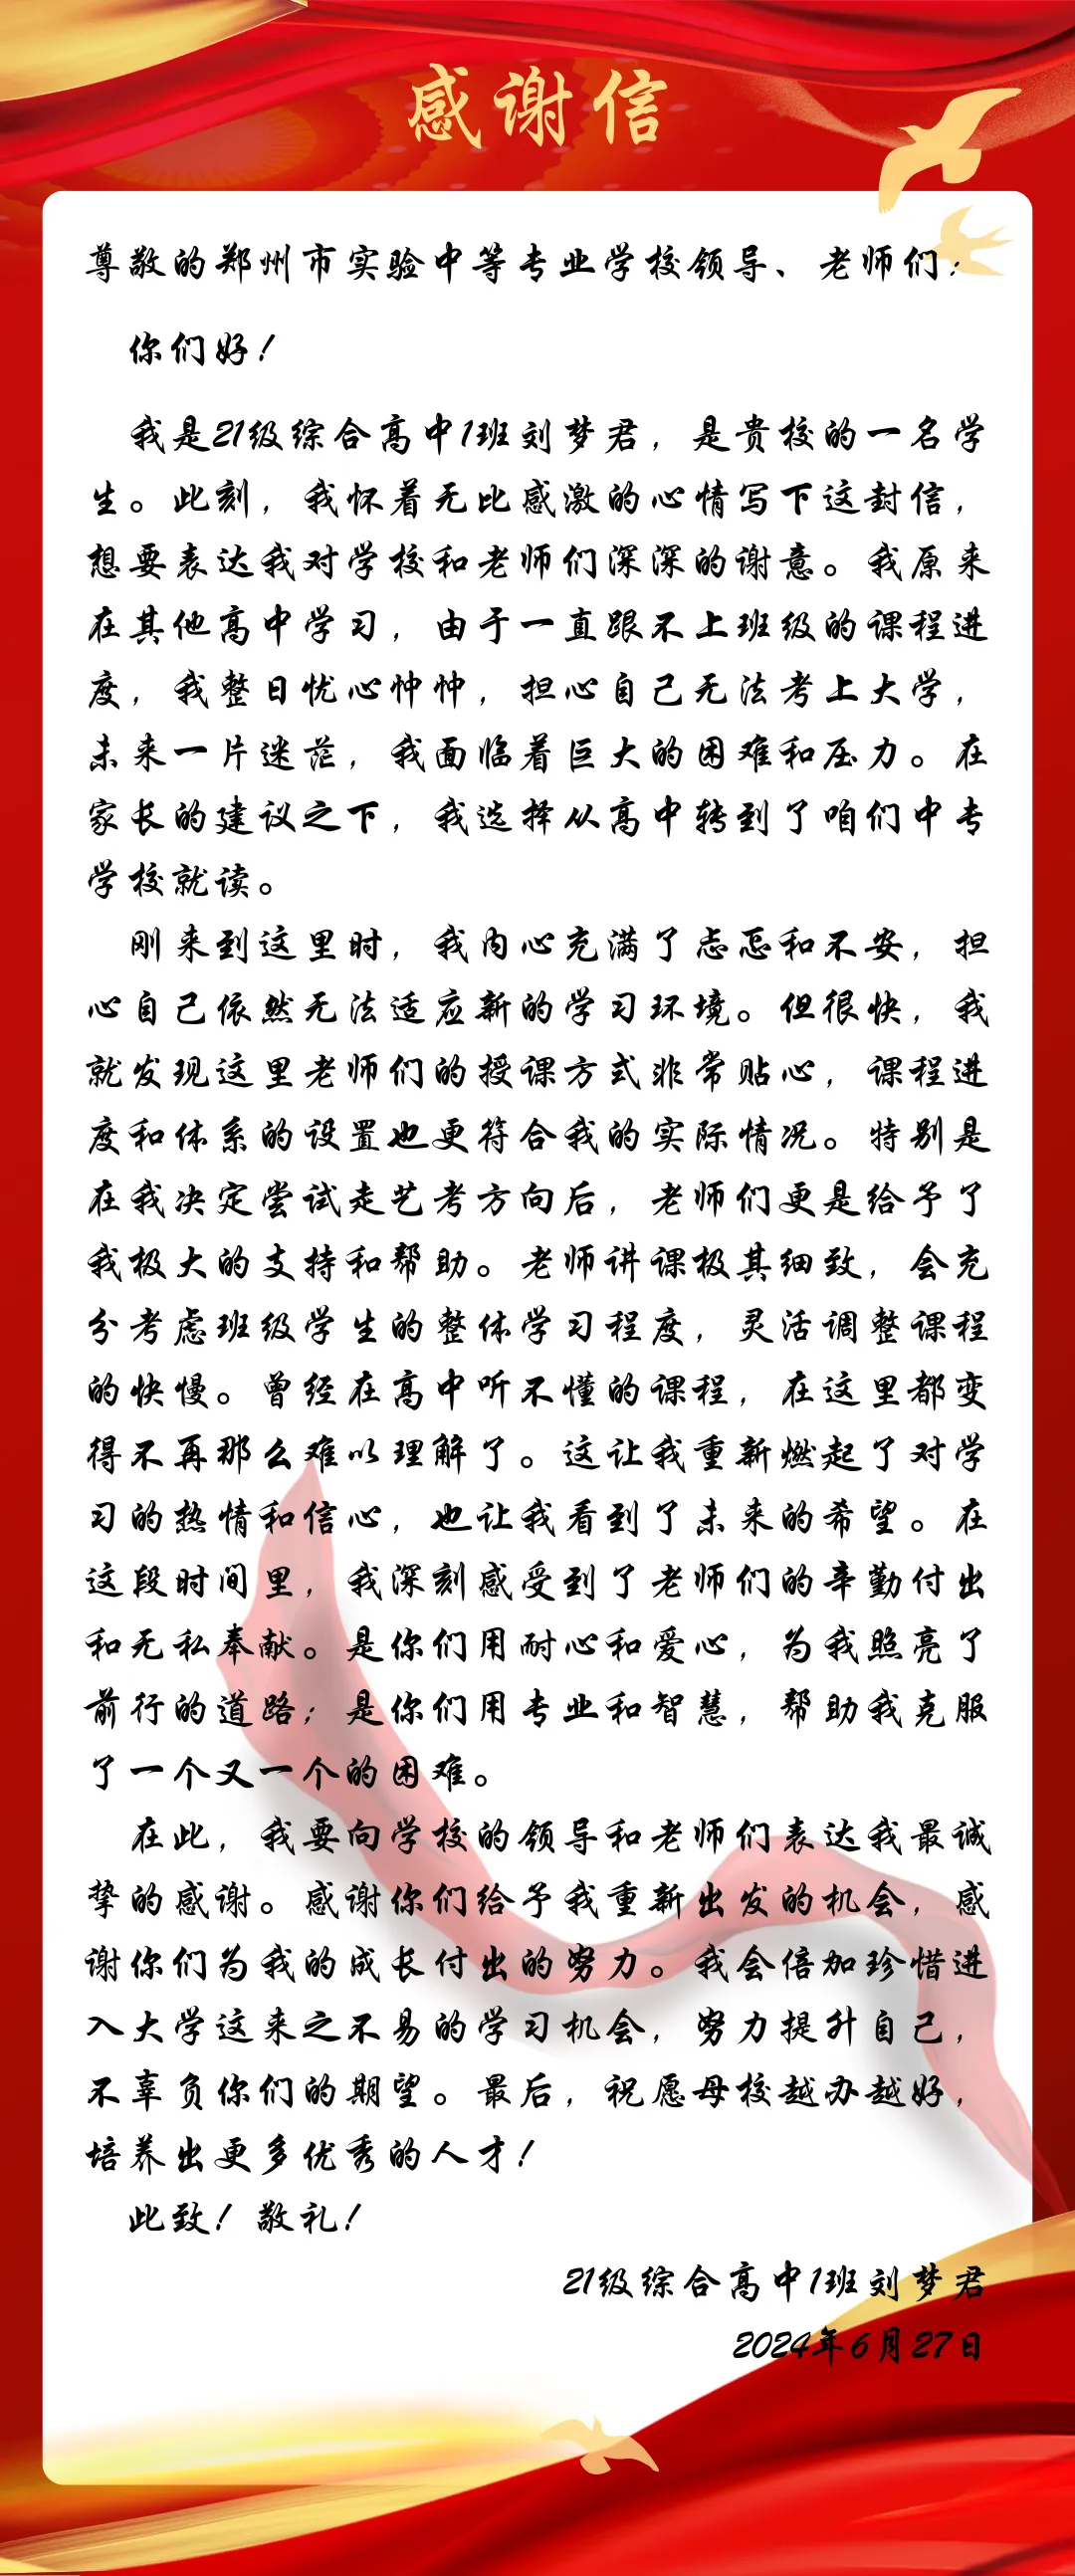 感谢信
尊敬的郑州市实验中等专业学校领导、老师们：
你们好！
我是21级综合高中1班刘梦君，是贵校的一名学
生。此刻，我怀着无比感激的心情写下这封信，
想要表达我对学校和老师们深深的谢意。我原来
在其他高中学习，由于一直跟不上班级的课程进
度，我整日忧心忡忡，担心自己无法考上大学，
未来一片迷茫，我面临着巨大的困难和压力。在
家长的建议之下，我选择从高中转到了咱们中专
学校就读。
刚来到这里时，我内心充满了忐忑和不安，担
心自己依然无法适应新的学习环境。但很快，我
就发现这里老师们的授课方式非常贴心，课程进
度和体系的设置也更符合我的实际情况。特别是
在我决定尝试走艺考方向后，老师们更是给予了
我极大的支持和帮助。老师讲课极其细致，会充
分考虑班级学生的整体学习程度，灵活调整课程
的快慢。曾经在高中听不懂的课程，在这里都变
得不再那么难以理解了。这让我重新燃起了对学
习的热情和信心，也让我看到了未来的希望。在
这段时间里，我深刻感受到了老师们的辛勤付出
和无私奉献。是你们用耐心和爱心，为我照亮了
前行的道路；是你们用专业和智慧，帮助我克服
了一个又一个的困难。
在此，我要向学校的领导和老师们表达我最诚
挚的感谢。感谢你们给予我重新出发的机会，感
谢你们为我的成长付出的努力。我会倍加珍惜进
入大学这来之不易的学习机会，努力提升自己，
不辜负你们的期望。最后，祝愿母校越办越好，
培养出更多优秀的人才！
此致！敬礼！
21级综合高中1班刘梦君
2024年6月27日